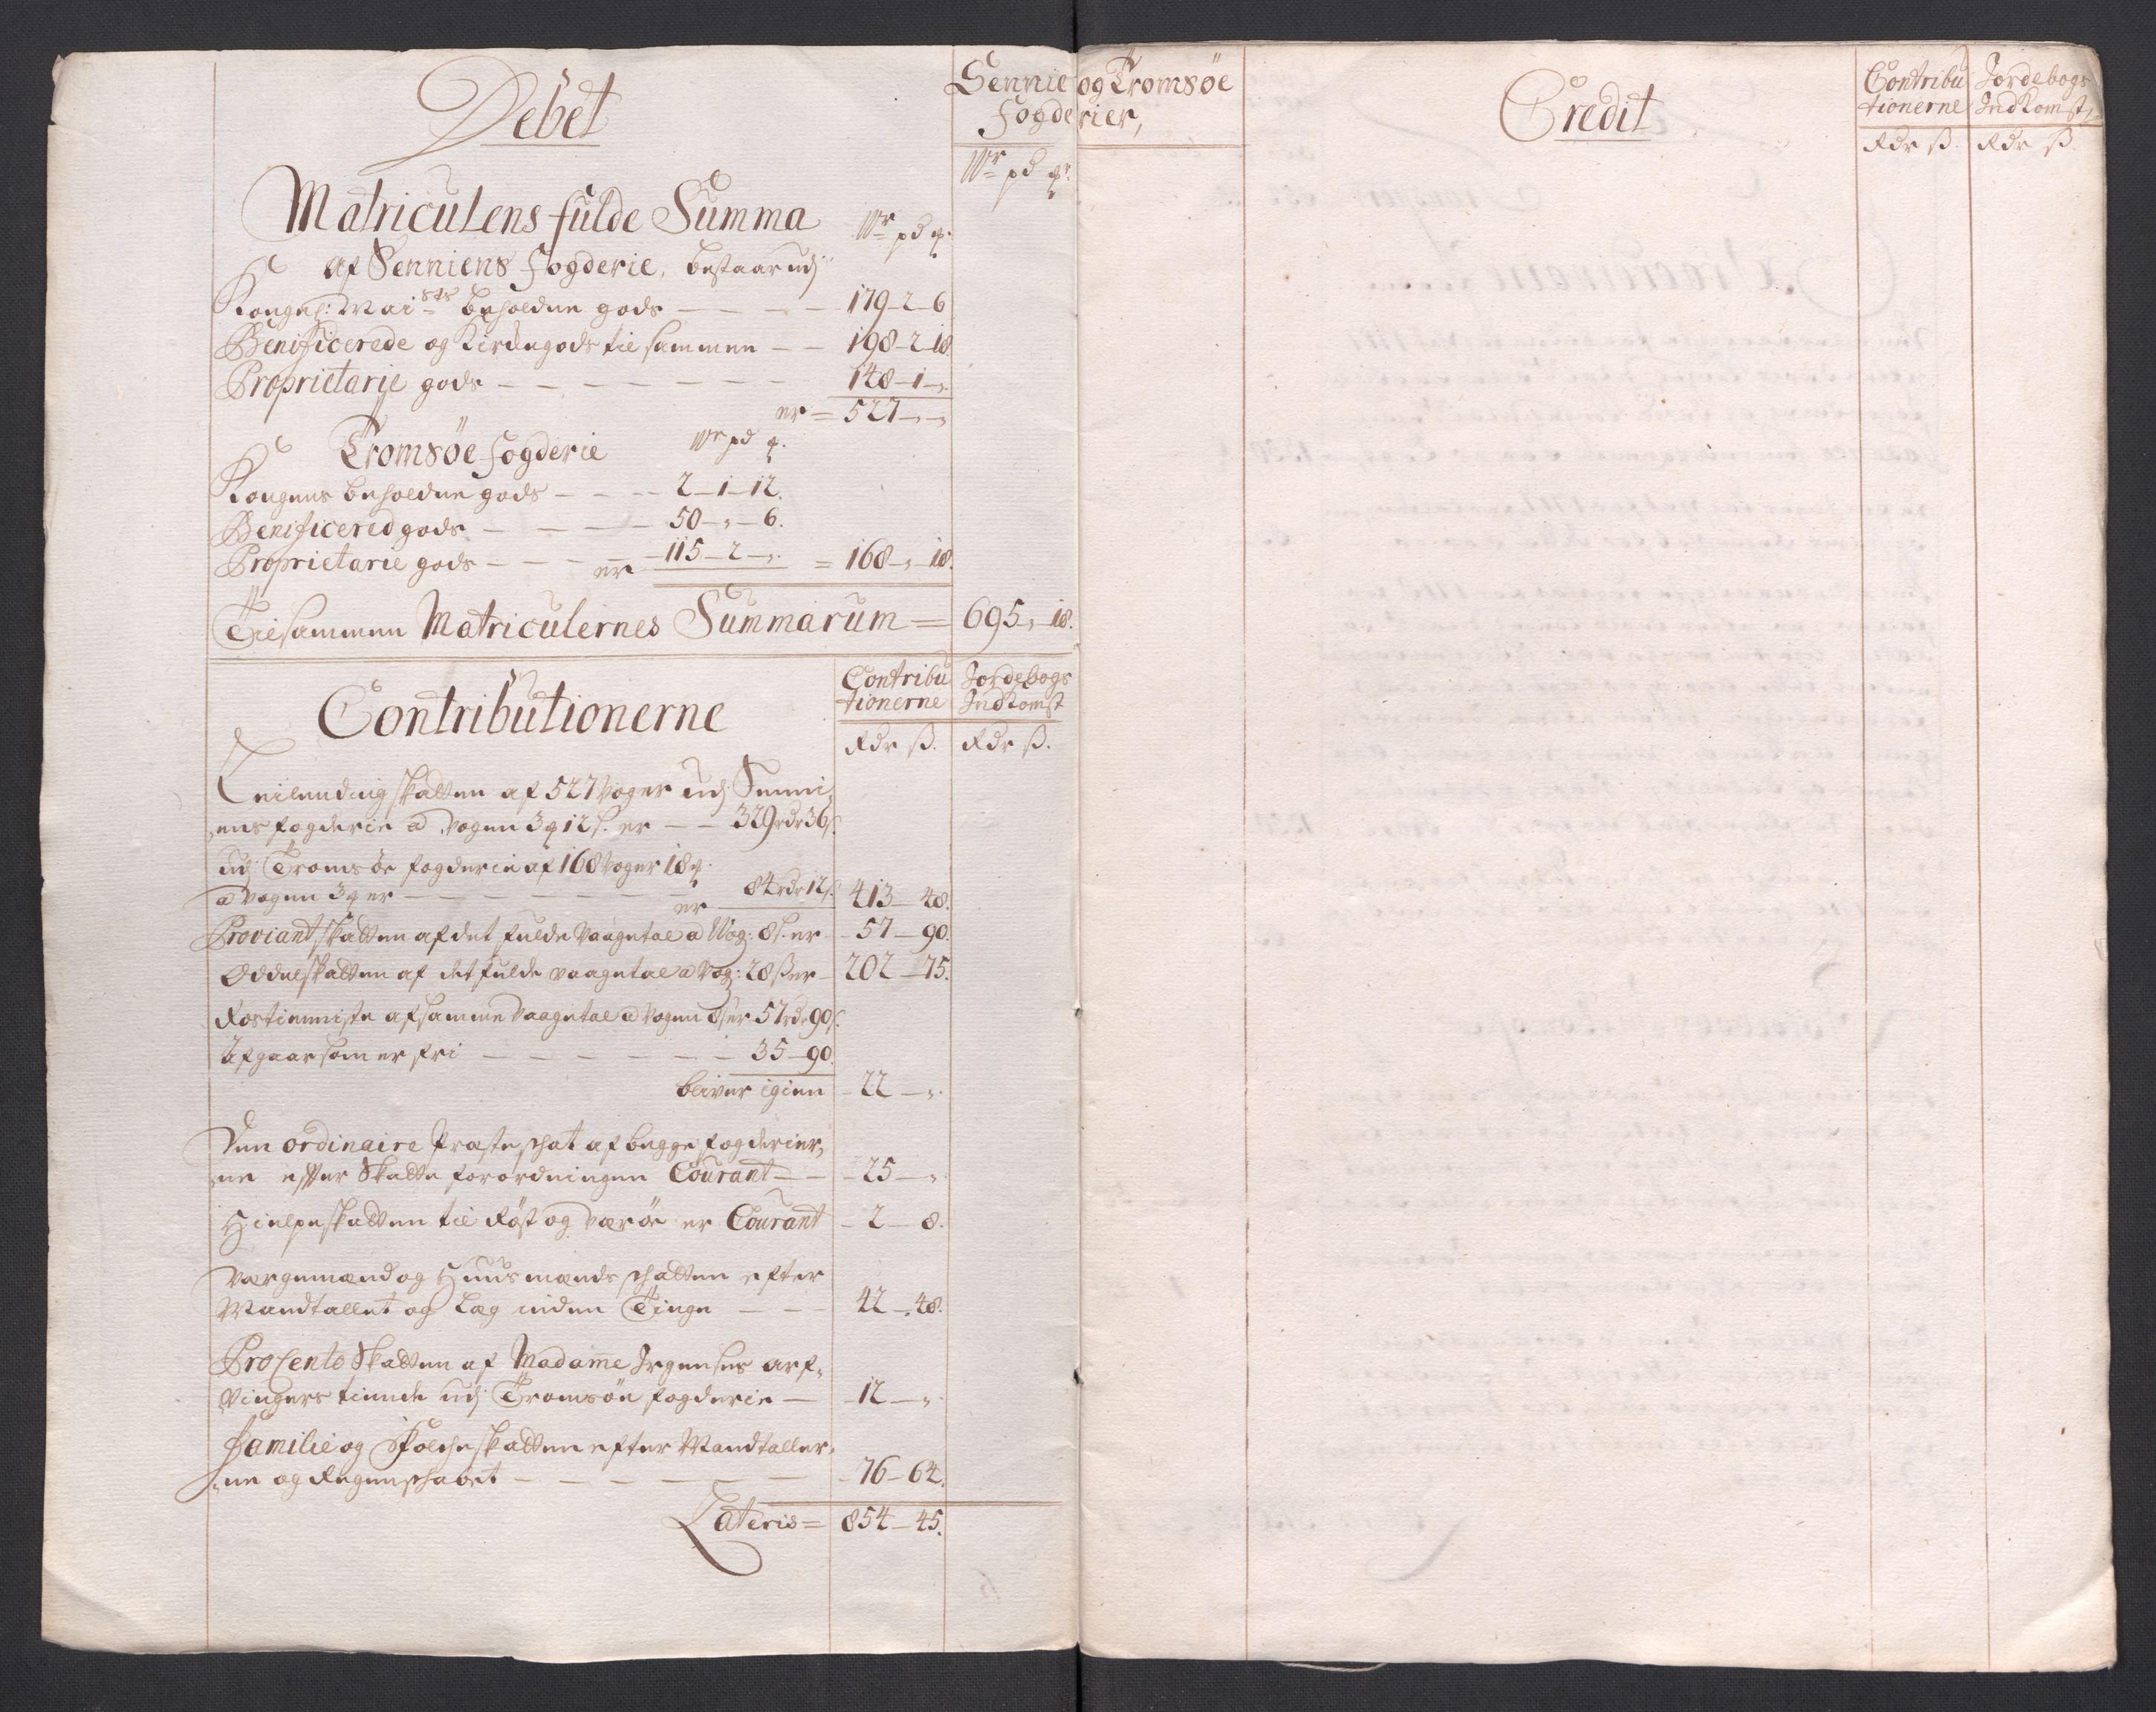 Debet
Sennie og Tromsöe
Fogderier,
Wr pd q.
Matriculens fulde Summa
Wr pd q.
af Senniens Fogderie, bestaar udj
Kongel: Mai.sts beholdne gods — — — 179–2–6
Benificerede og Kirchegods til sammen — — 198–2–18.
Proprietarie gods — — — — — — — 148–1–„
er = 527–„–„
Tromsöe Fogderie Wr pd q.
Kongens beholdne gods — — — 2–1–12.
Benificered gods — — — — 50–„–6.
Proprietarie gods — — — er 115–2–„. = 168–„–18.
Tilsammen Matriculernes Summarum = 695„ 18.
Contributionerne
Contribu Jordebogs
tionerne Indkomst
Rdr ß. Rdr ß.
Leilending skatten af 527 voger udj Senni,
ens fogderie a vogen 3 q 12 ß. er — — 329 rdr 36 ß.
udj Tromsöe fogderie af 168 voger 18 q.
a vogen 3 q er — — — — — — er 84 rdr 12 ß. 413–48.
Proviantskatten af det fulde vaagetal a Wog: 8 ß. er – 57–90.
Oddelskatten af det fulde vaagetal a vog: 28 ß er – 202–75.
Rostienniste af samme vaagetal a vogen 8 ß er 57 rdr 90 ß.
Afgaar som er fri — — — — — — 35–90.
bliver igien – 22–„.
Den ordinaire Præste schat af begge fogderier,
ne efter Skatte forordningen Courant — — 25–„.
Hielpeskatten til Röst og Værøe er Courant – 2–8.
Værgemænd og Huusmænds schatten efter
Mandtallet og Læg inden Tinge — — — 42–48.
ProCento Skatten af Madame Irgenses arf,
vingers tiende udj Tromsöe fogderie — 12–„.
Familie og Folcheskatten efter Mandtaller,
ne og Regenschabet — — — — 76–64.
Lateris = 854–45.
Credit
Contribu Jordebogs
tionerne Indkomst,
Rdr ß. Rdr ß.